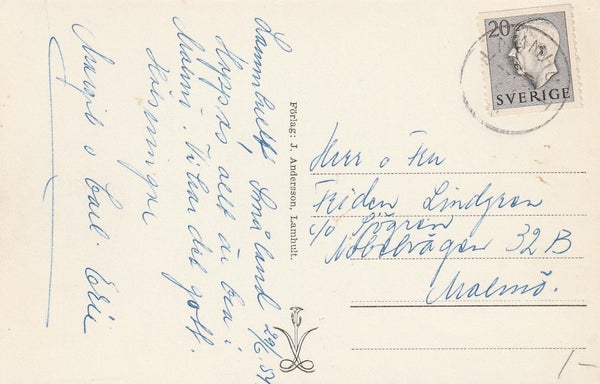 Lammhult, Småland 29/6 54
Hoppas allt är bra i
Malmö. Vi har det gott.
Hälsningar
o Carl-Eric
Förlag: J. Andersson, Lamhult.
20
SVERIGE
Herr o Fru
Friden Lindgren
c/o Sjögren
Nobelvägen 32 B
Malmö.
1/-